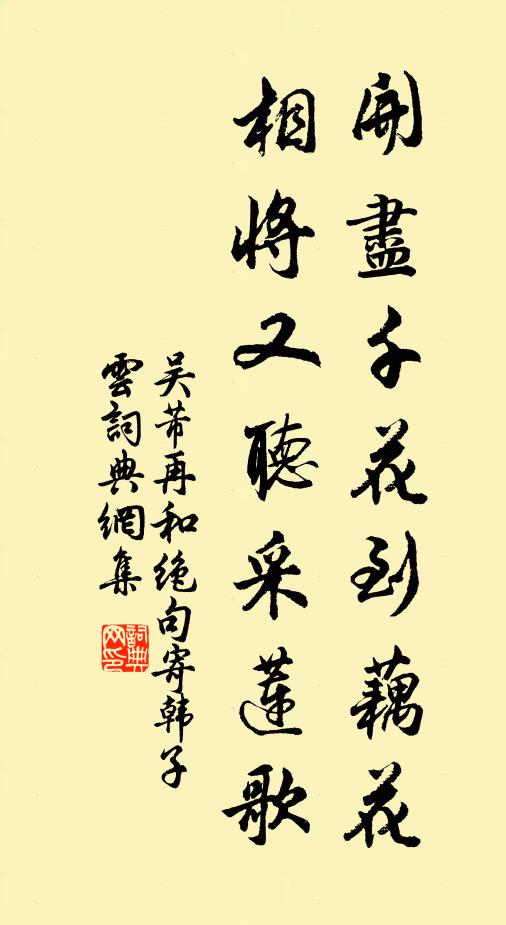 開盡千花到藕花
相將又聽采蓮歌
吴芾再和絶句寄韩子
雲詞典網集
詞典
网印